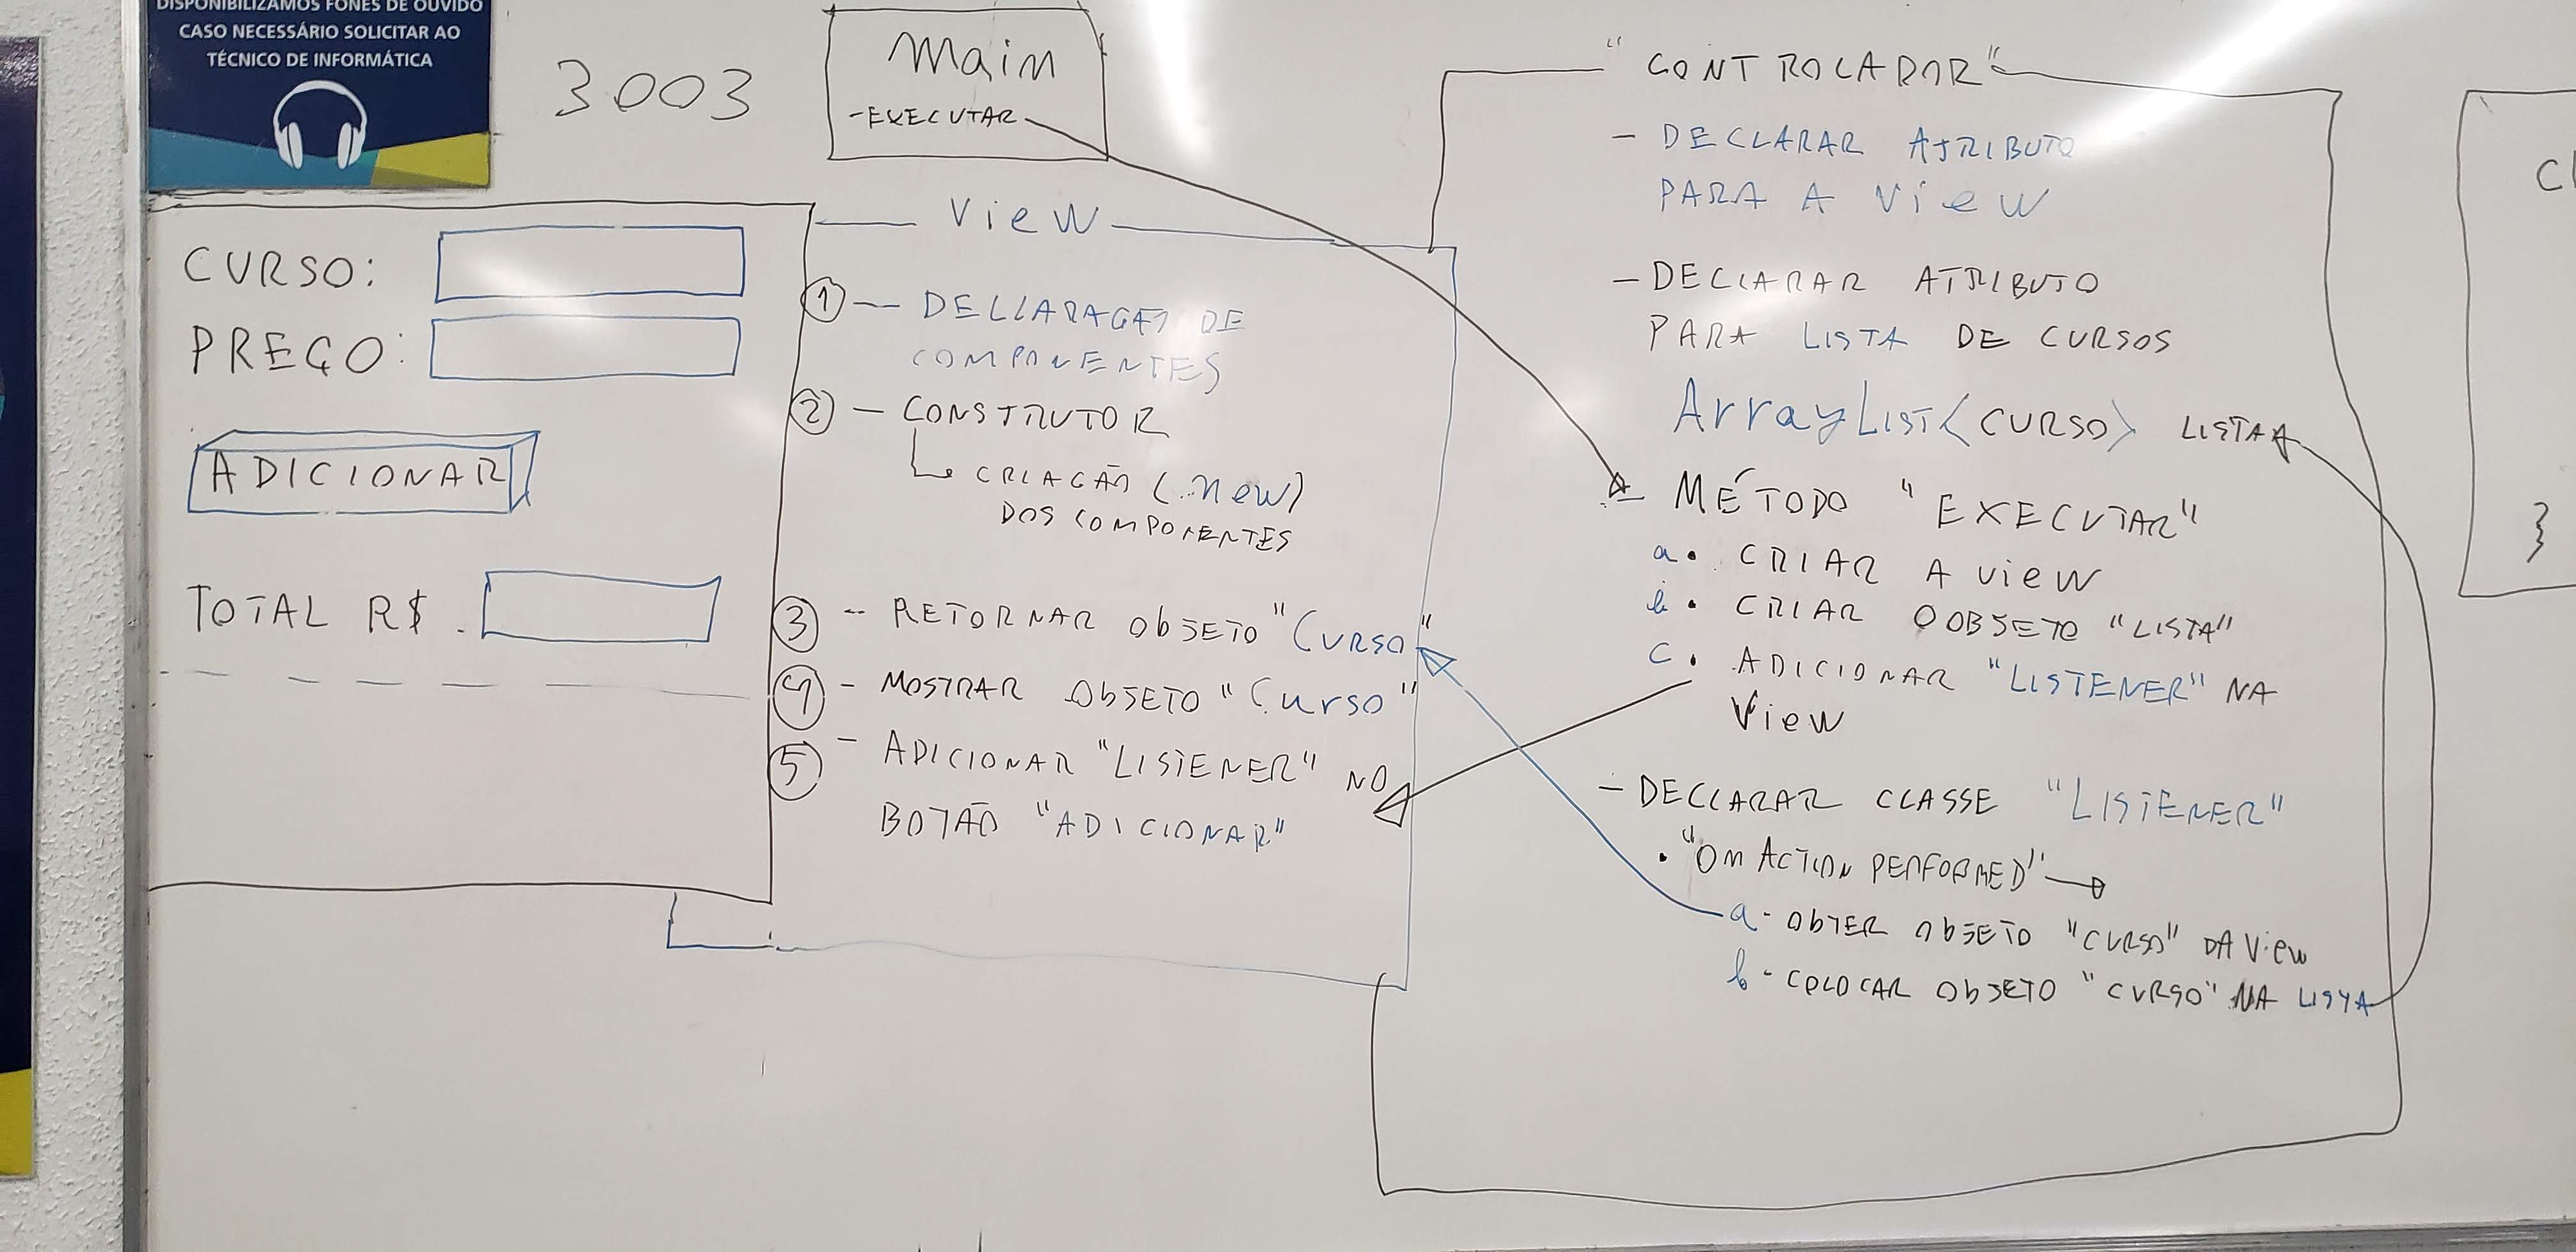 DISPONIBILIZAMOS FONES DE OUVIDO
CASO NECESSÁRIO SOLICITAR AO
TÉCNICO DE INFORMÁTICA
3003
Main
-EXECUTAR
CURSO:
PREÇO:
ADICIONAR
TOTAL R$
View
1 - DECLARAÇÃO DE
COMPONENTES
2 - CONSTRUTOR
CRIAÇÃO (new)
DOS COMPONENTES
3 - RETORNAR ObJETO "CURSO"
4 - MOSTRAR ObJETO "Curso"
5 - ADICIONAR "LISTENER" NO
BOTÃO "ADICIONAR"
"CONTROLADOR"
- DECLARAR ATRIBUTO
PARA A View
- DECLARAR ATRIBUTO
PARA LISTA DE CURSOS
ArrayList<CURSO> LISTA
- MÉTODO "EXECUTAR"
a. CRIAR A view
b. CRIAR O OBJETO "LISTA"
c. ADICIONAR "LISTENER" NA
View
- DECLARAR CLASSE "LISTENER"
• "ON ACTION PERFORMED"
a - ObTER ObJETO "CURSO" DA View
b - COLOCAR ObJETO "CURSO" NA LISTA
}